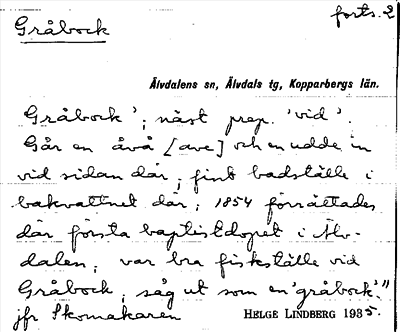 forts. 2
Gråbock
Älvdalens sn, Älvdals tg, Kopparbergs län.
Gråbock'; näst prep. 'vid'.
Går en åvå [ave] och en udde in
vid sidan där; fint badställe i
bakvattnet där; 1854 förrättades
där första baptistdopet i Älv-
dalen; var bra fiskställe vid
Gråbock; såg ut som en 'gråbock'."
jfr Skomakaren
HELGE LINDBERG 1935.